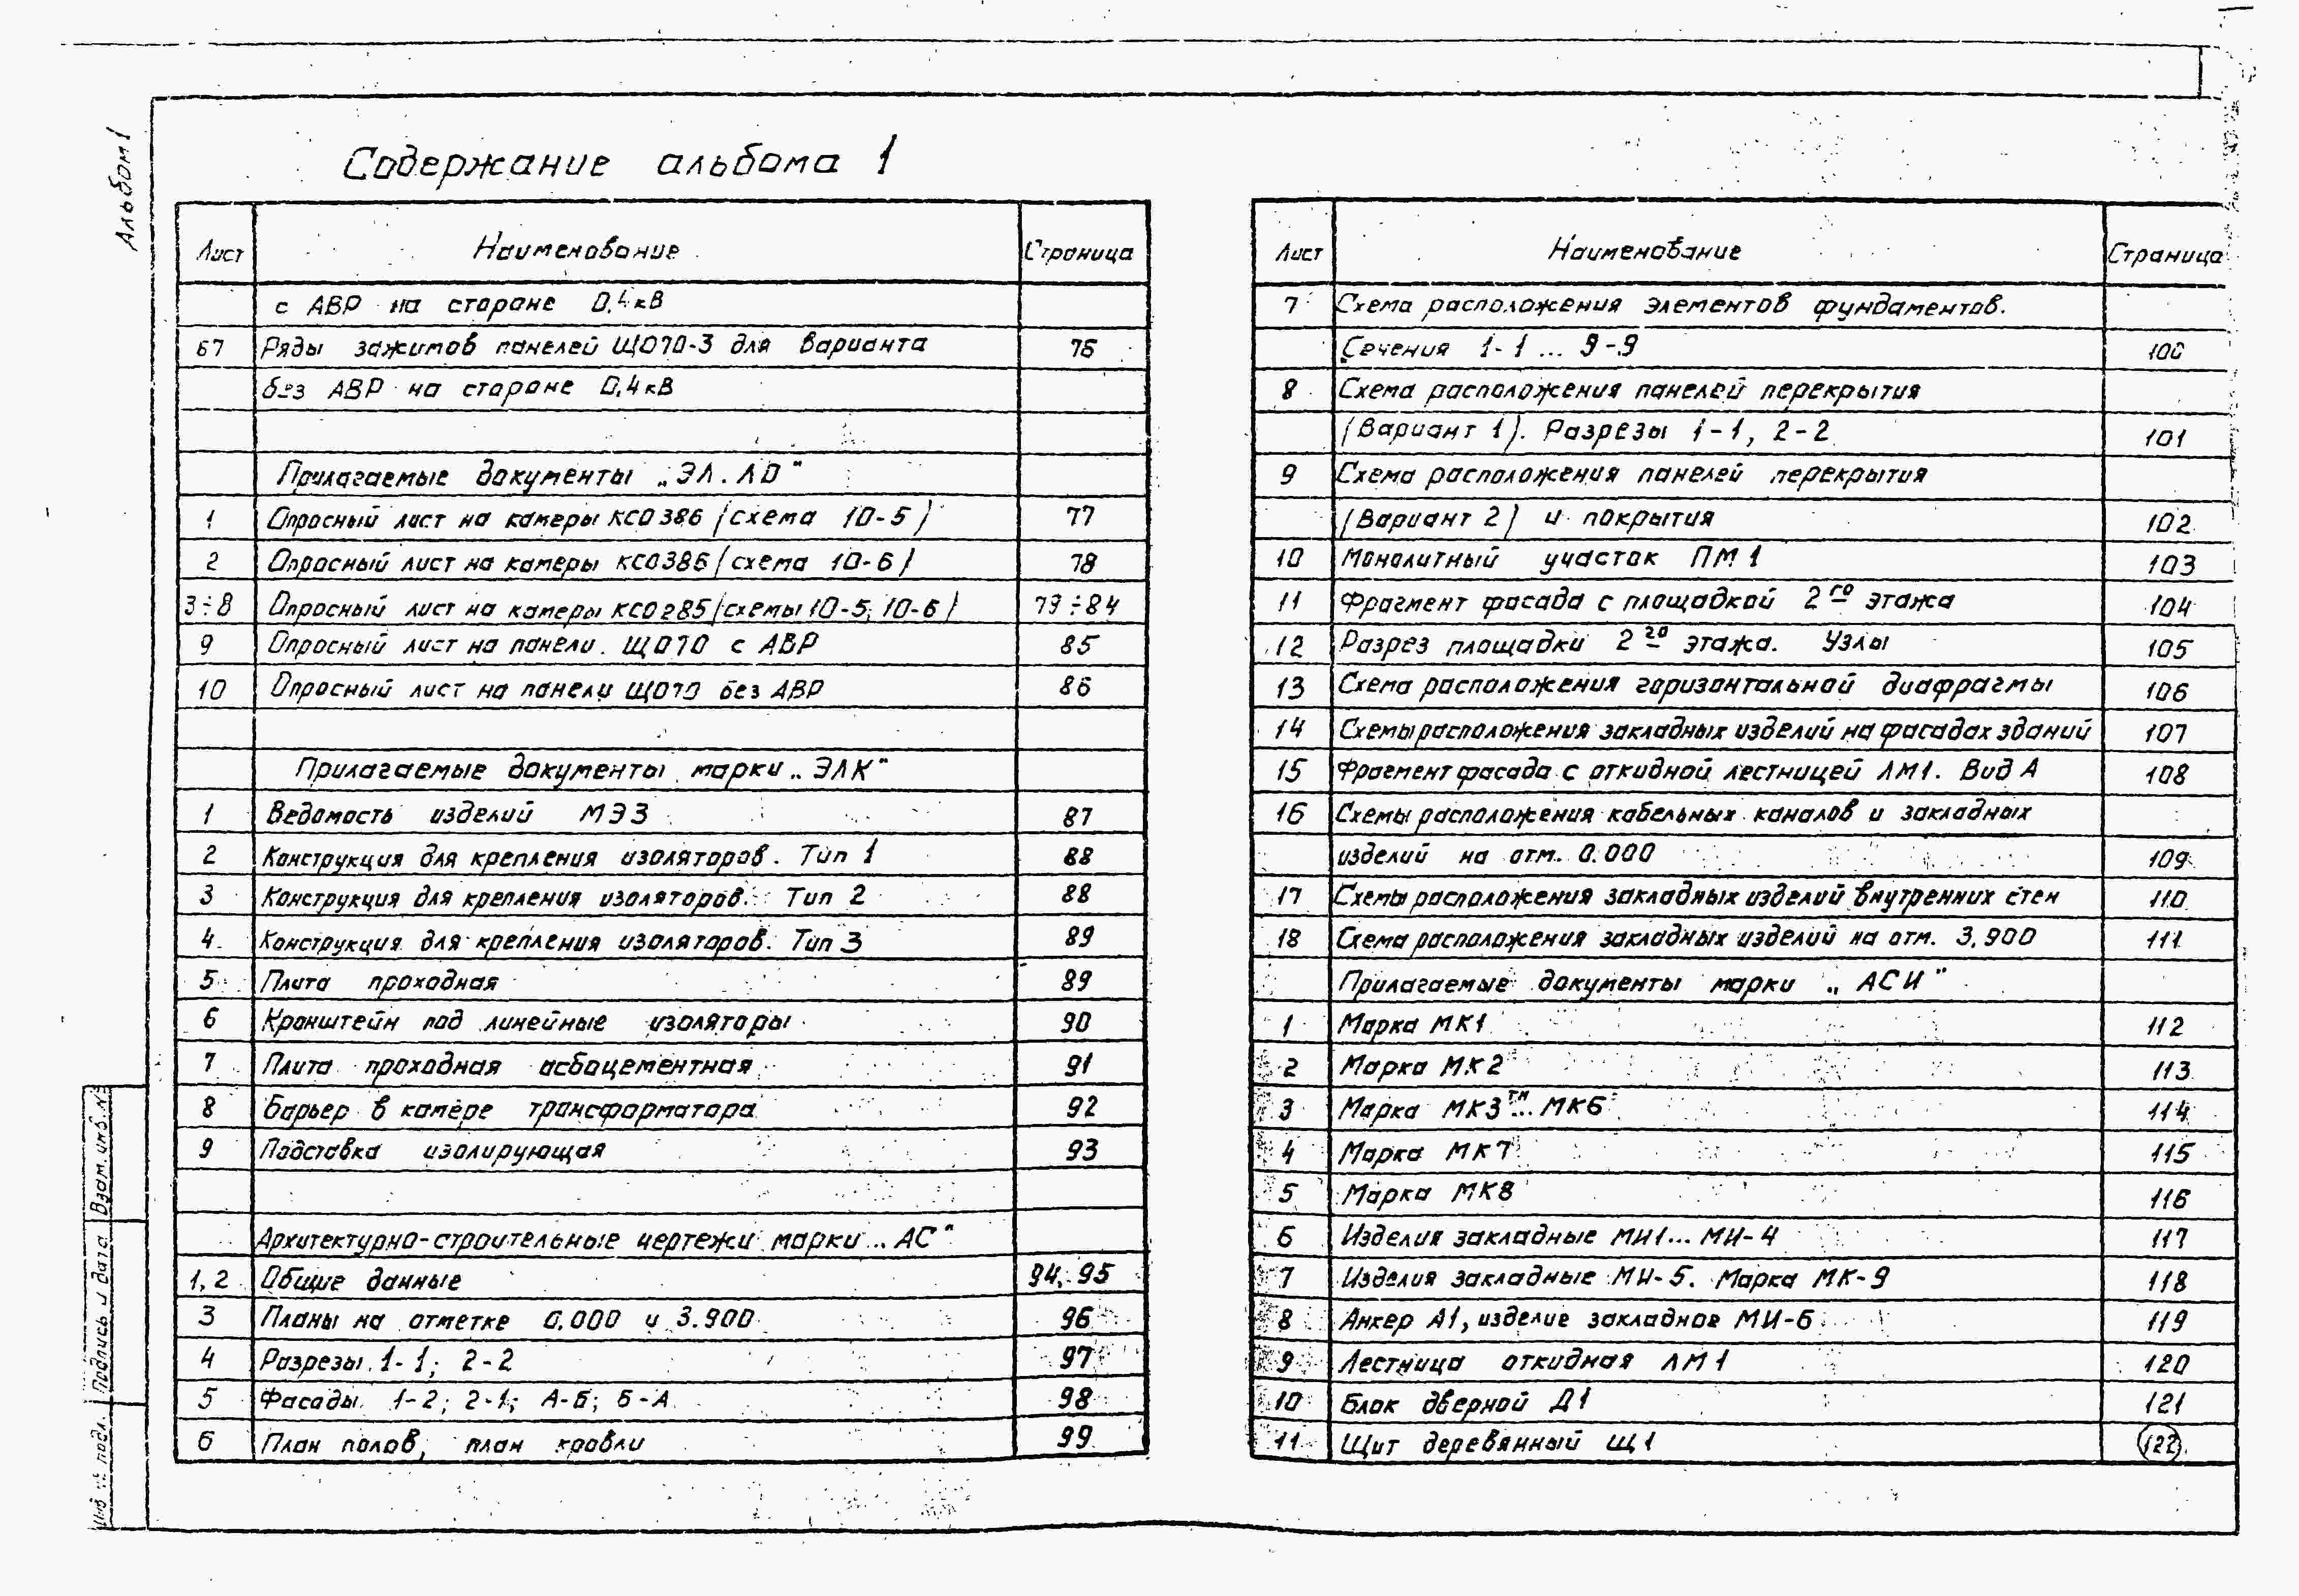 Альбом 1
Содержание альбома 1
Лист Наименование Страница
с АВР на стороне 0,4кВ
67 Ряды зажимов панелей ЩО70-3 для варианта 76
без АВР на стороне 0,4кВ
Прилагаемые документы „ЭЛ.ЛО"
1 Опросный лист на камеры КСО386 (схема 10-5) 77
2 Опросный лист на камеры КСО386 (схема 10-6) 78
3÷8 Опросный лист на камеры КСО285 (схемы 10-5; 10-6) 79÷84
9 Опросный лист на панели ЩО70 с АВР 85
10 Опросный лист на панели ЩО70 без АВР 86
Прилагаемые документы марки „ЭЛК"
1 Ведомость изделий МЭЗ 87
2 Конструкция для крепления изоляторов. Тип 1 88
3 Конструкция для крепления изоляторов. Тип 2 88
4 Конструкция для крепления изоляторов. Тип 3 89
5 Плита проходная 89
6 Кронштейн под линейные изоляторы 90
7 Плита проходная асбоцементная 91
8 Барьер в камере трансформатора 92
9 Подставка изолирующая 93
Архитектурно-строительные чертежи марки „АС"
1,2 Общие данные 94, 95
3 Планы на отметке 0.000 и 3.900 96
4 Разрезы 1-1; 2-2 97
5 Фасады 1-2; 2-1; А-Б; Б-А 98
6 План полов, план кровли 99
Лист Наименование Страница
7 Схема расположения элементов фундаментов.
Сечения 1-1 ... 9-9 100
8 Схема расположения панелей перекрытия
(Вариант 1). Разрезы 1-1, 2-2 101
9 Схема расположения панелей перекрытия
(Вариант 2) и покрытия 102
10 Монолитный участок ПМ1 103
11 Фрагмент фасада с площадкой 2го этажа 104
12 Разрез площадки 2го этажа. Узлы 105
13 Схема расположения горизонтальной диафрагмы 106
14 Схемы расположения закладных изделий на фасадах зданий 107
15 Фрагмент фасада с откидной лестницей ЛМ1. Вид А 108
16 Схемы расположения кабельных каналов и закладных
изделий на отм. 0.000 109
17 Схемы расположения закладных изделий внутренних стен 110
18 Схема расположения закладных изделий на отм. 3.900 111
Прилагаемые документы марки „АСИ"
1 Марка МК1 112
2 Марка МК2 113
3 Марка МК3 ... МК6 114
4 Марка МК7 115
5 Марка МК8 116
6 Изделия закладные МИ1... МИ-4 117
7 Изделия закладные МИ-5. Марка МК-9 118
8 Анкер А1, изделие закладное МИ-6 119
9 Лестница откидная ЛМ1 120
10 Блок дверной Д1 121
11 Щит деревянный Щ1 122
Взам. инв. №
Подпись и дата
Инв № подл.